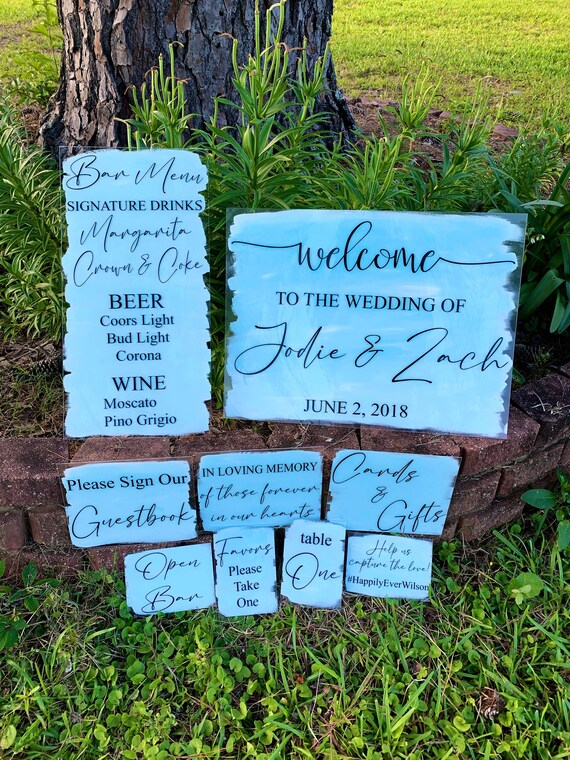 Bar Menu
SIGNATURE DRINKS
Margarita
Crown & Coke
BEER
Coors Light
Bud Light
Corona
WINE
Moscato
Pino Grigio
welcome
TO THE WEDDING OF
Jodie & Zach
JUNE 2, 2018
Please Sign Our
Guestbook
IN LOVING MEMORY
of those forever
in our hearts
Cards
&
Gifts
Open
Bar
Favors
Please
Take
One
table
One
Help us
capture the love!
#HappilyEverWilson